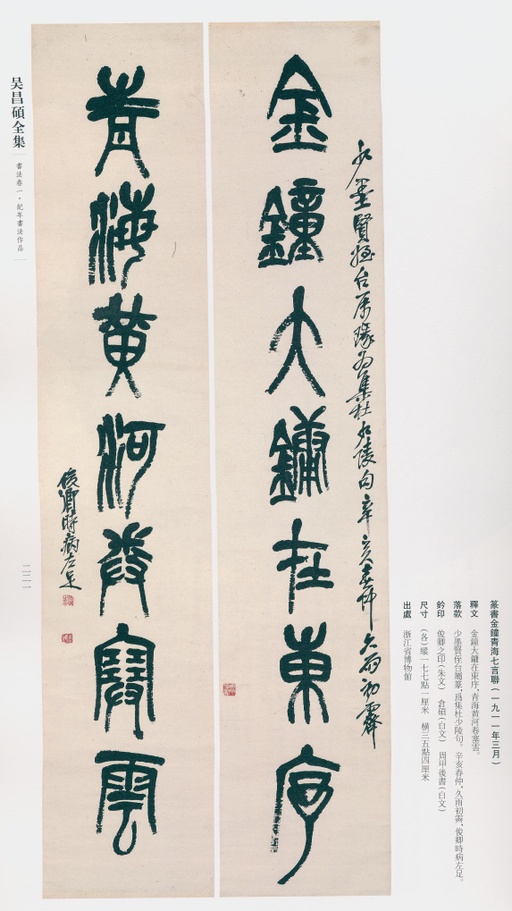 篆書金鐘青海七言聯(一九一一年三月)
釋文 金鐘大鏞在東序,青海黄河卷塞雲。
落款 少墨賢侄台屬篆,爲集杜少陵句。辛亥春仲,久雨初霽,俊卿時病左足。
鈐印 俊卿之印(朱文) 倉碩(白文) 周甲後書(白文)
尺寸 (各)縱一七七點一厘米 横三五點四厘米
出處 浙江省博物館
少墨賢姪台屬篆為集杜少陵句辛亥春仲久雨初霽
金鐘大鏞在東序
青海黄河卷塞雲
俊卿時病左足
吴昌碩全集
書法卷一·紀年書法作品